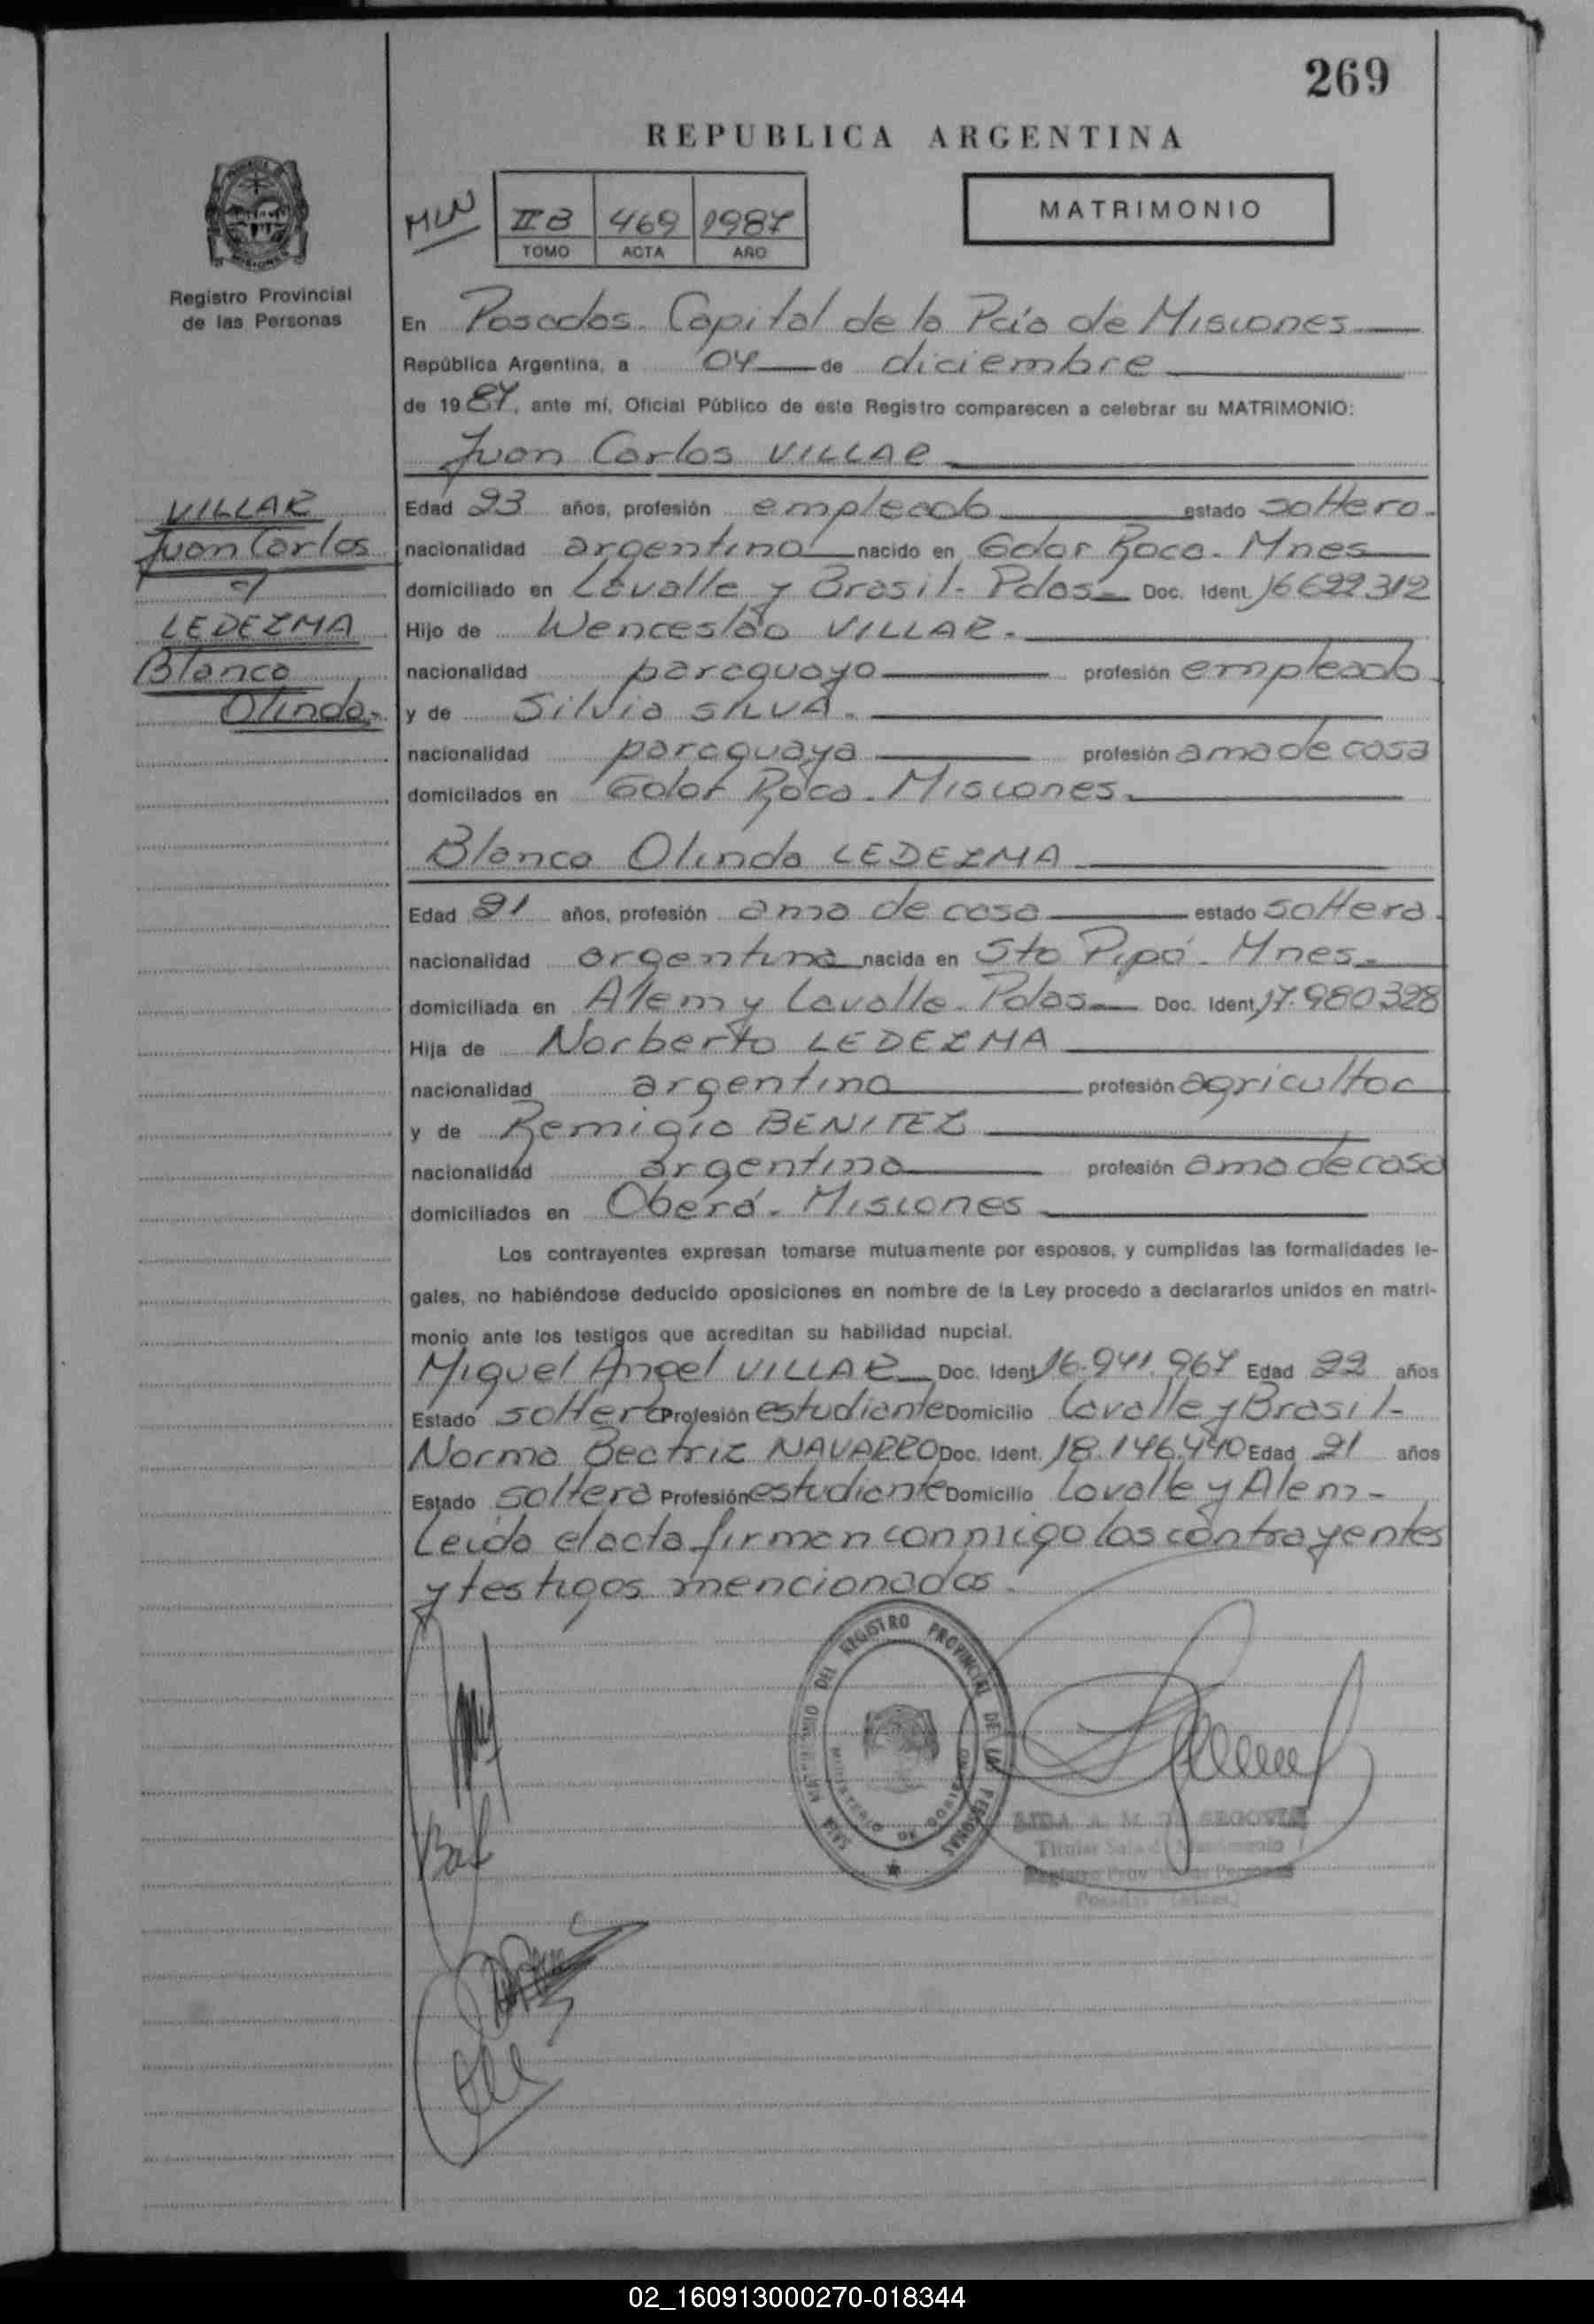 269
REPUBLICA ARGENTINA
MATRIMONIO
II B 469 1987
TOMO ACTA AÑO
Registro Provincial
de las Personas
En Posadas. Capital de la Pcia de Misiones
República Argentina, a 04 de diciembre
de 1987, ante mí, Oficial Público de este Registro comparecen a celebrar su MATRIMONIO:
Juan Carlos VILLAR
VILLAR
Juan Carlos
c/
LEDEZMA
Blanca
Olinda.
Edad 23 años, profesión empleado estado soltero.
nacionalidad argentino nacido en Gdor Roca. Mnes
domiciliado en Lavalle y Brasil- Pdas Doc. Ident. 16622312
Hijo de Wenceslao VILLAR.
nacionalidad paraguayo profesión empleado.
y de Silvia SILVA.
nacionalidad paraguaya profesión ama de casa
domicilados en Gdor Roca. Misiones.
Blanca Olinda LEDEZMA
Edad 21 años, profesión ama de casa estado soltera.
nacionalidad argentina nacida en Sto Pipó. Mnes.
domiciliada en Alem y Lavalle. Pdas Doc. Ident. 17.980328
Hija de Norberto LEDEZMA
nacionalidad argentino profesión agricultor
y de Remigia BENITEZ
nacionalidad argentina profesión ama de casa
domiciliados en Oberá. Misiones
Los contrayentes expresan tomarse mutuamente por esposos, y cumplidas las formalidades le-
gales, no habiéndose deducido oposiciones en nombre de la Ley procedo a declararlos unidos en matri-
monio ante los testigos que acreditan su habilidad nupcial.
Miguel Angel VILLAR Doc. Ident. 16.941.967 Edad 22 años
Estado soltero Profesión estudiante Domicilio Lavalle y Brasil-
Norma Beatriz NAVARRO Doc. Ident. 18.146.440 Edad 21 años
Estado soltera Profesión estudiante Domicilio Lavalle y Alem-
Leida el acta firman conmigo los contrayentes
y testigos mencionados.
DEL REGISTRO PROVINCIAL DE LAS PERSONAS
MINISTERIO DE GOBIERNO
SEGOVIA
Titular
02_160913000270-018344